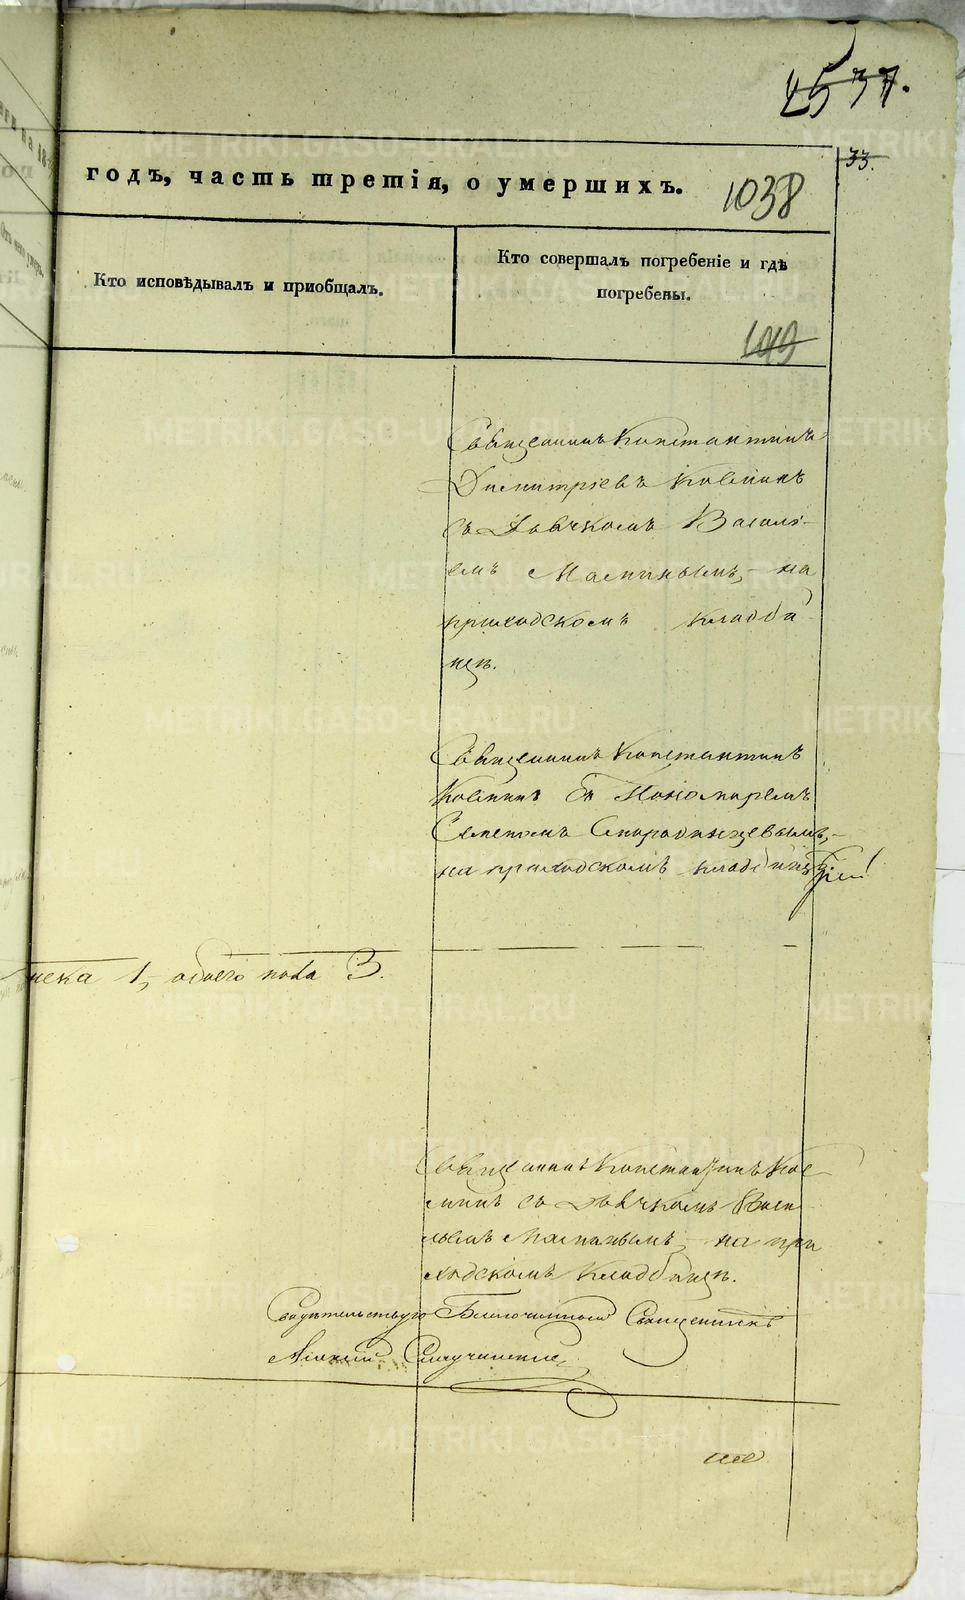 METRIKI.GASO-URAL.RU
2537.
33.
годъ, часть третія, о умершихъ.
1038
Кто исповѣдывалъ и приобщалъ.
Кто совершалъ погребеніе и гдѣ
погребены.
Священникъ Константинъ
Димитріевъ Кокшинъ
съ Дьячкомъ Василі-
емъ Маминымъ, на
приходскомъ кладби-
щѣ.
Священникъ Константинъ
съ Пономаремъ
Семеномъ
на приходскомъ кладбищѣ
пска 1, обоего пола 3.
Священникъ Константинъ
съ Дьячкомъ Васи
льемъ Маминымъ, на при
ходскомъ кладбищѣ.
Свидѣтельствую Благочинный Священникъ